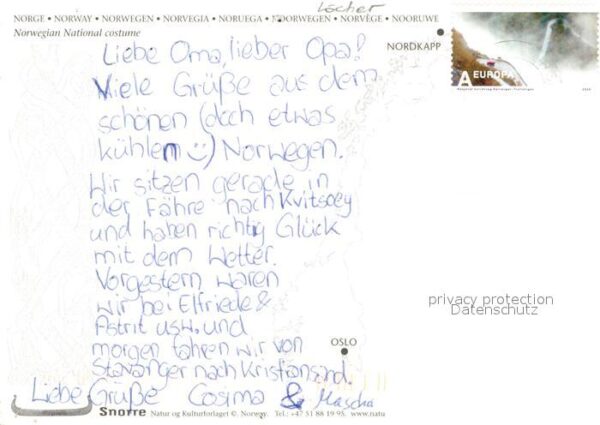 Löcher
NORGE • NORWAY • NORWEGEN • NORVEGIA • NORUEGA • NOORWEGEN • NORVÈGE • NOORUWE
Norwegian National costume
NORDKAPP
A EUROPA
Liebe Oma, lieber Opa!
Viele Grüße aus dem
schönen (doch etwas
kühlem :-)) Norwegen.
Wir sitzen gerade in
der Fähre nach Kvitsoey
und haben richtig Glück
mit dem Wetter.
Vorgestern waren
wir bei Elfriede &
Astrit usw. und
morgen fahren wir von
Stavanger nach Kristiansand.
Liebe Grüße Cosima & Mascha
OSLO
privacy protection
Datenschutz
Snorre Natur og Kulturforlaget ©. Norway. Tel.: +47 51 88 19 95. www.natu